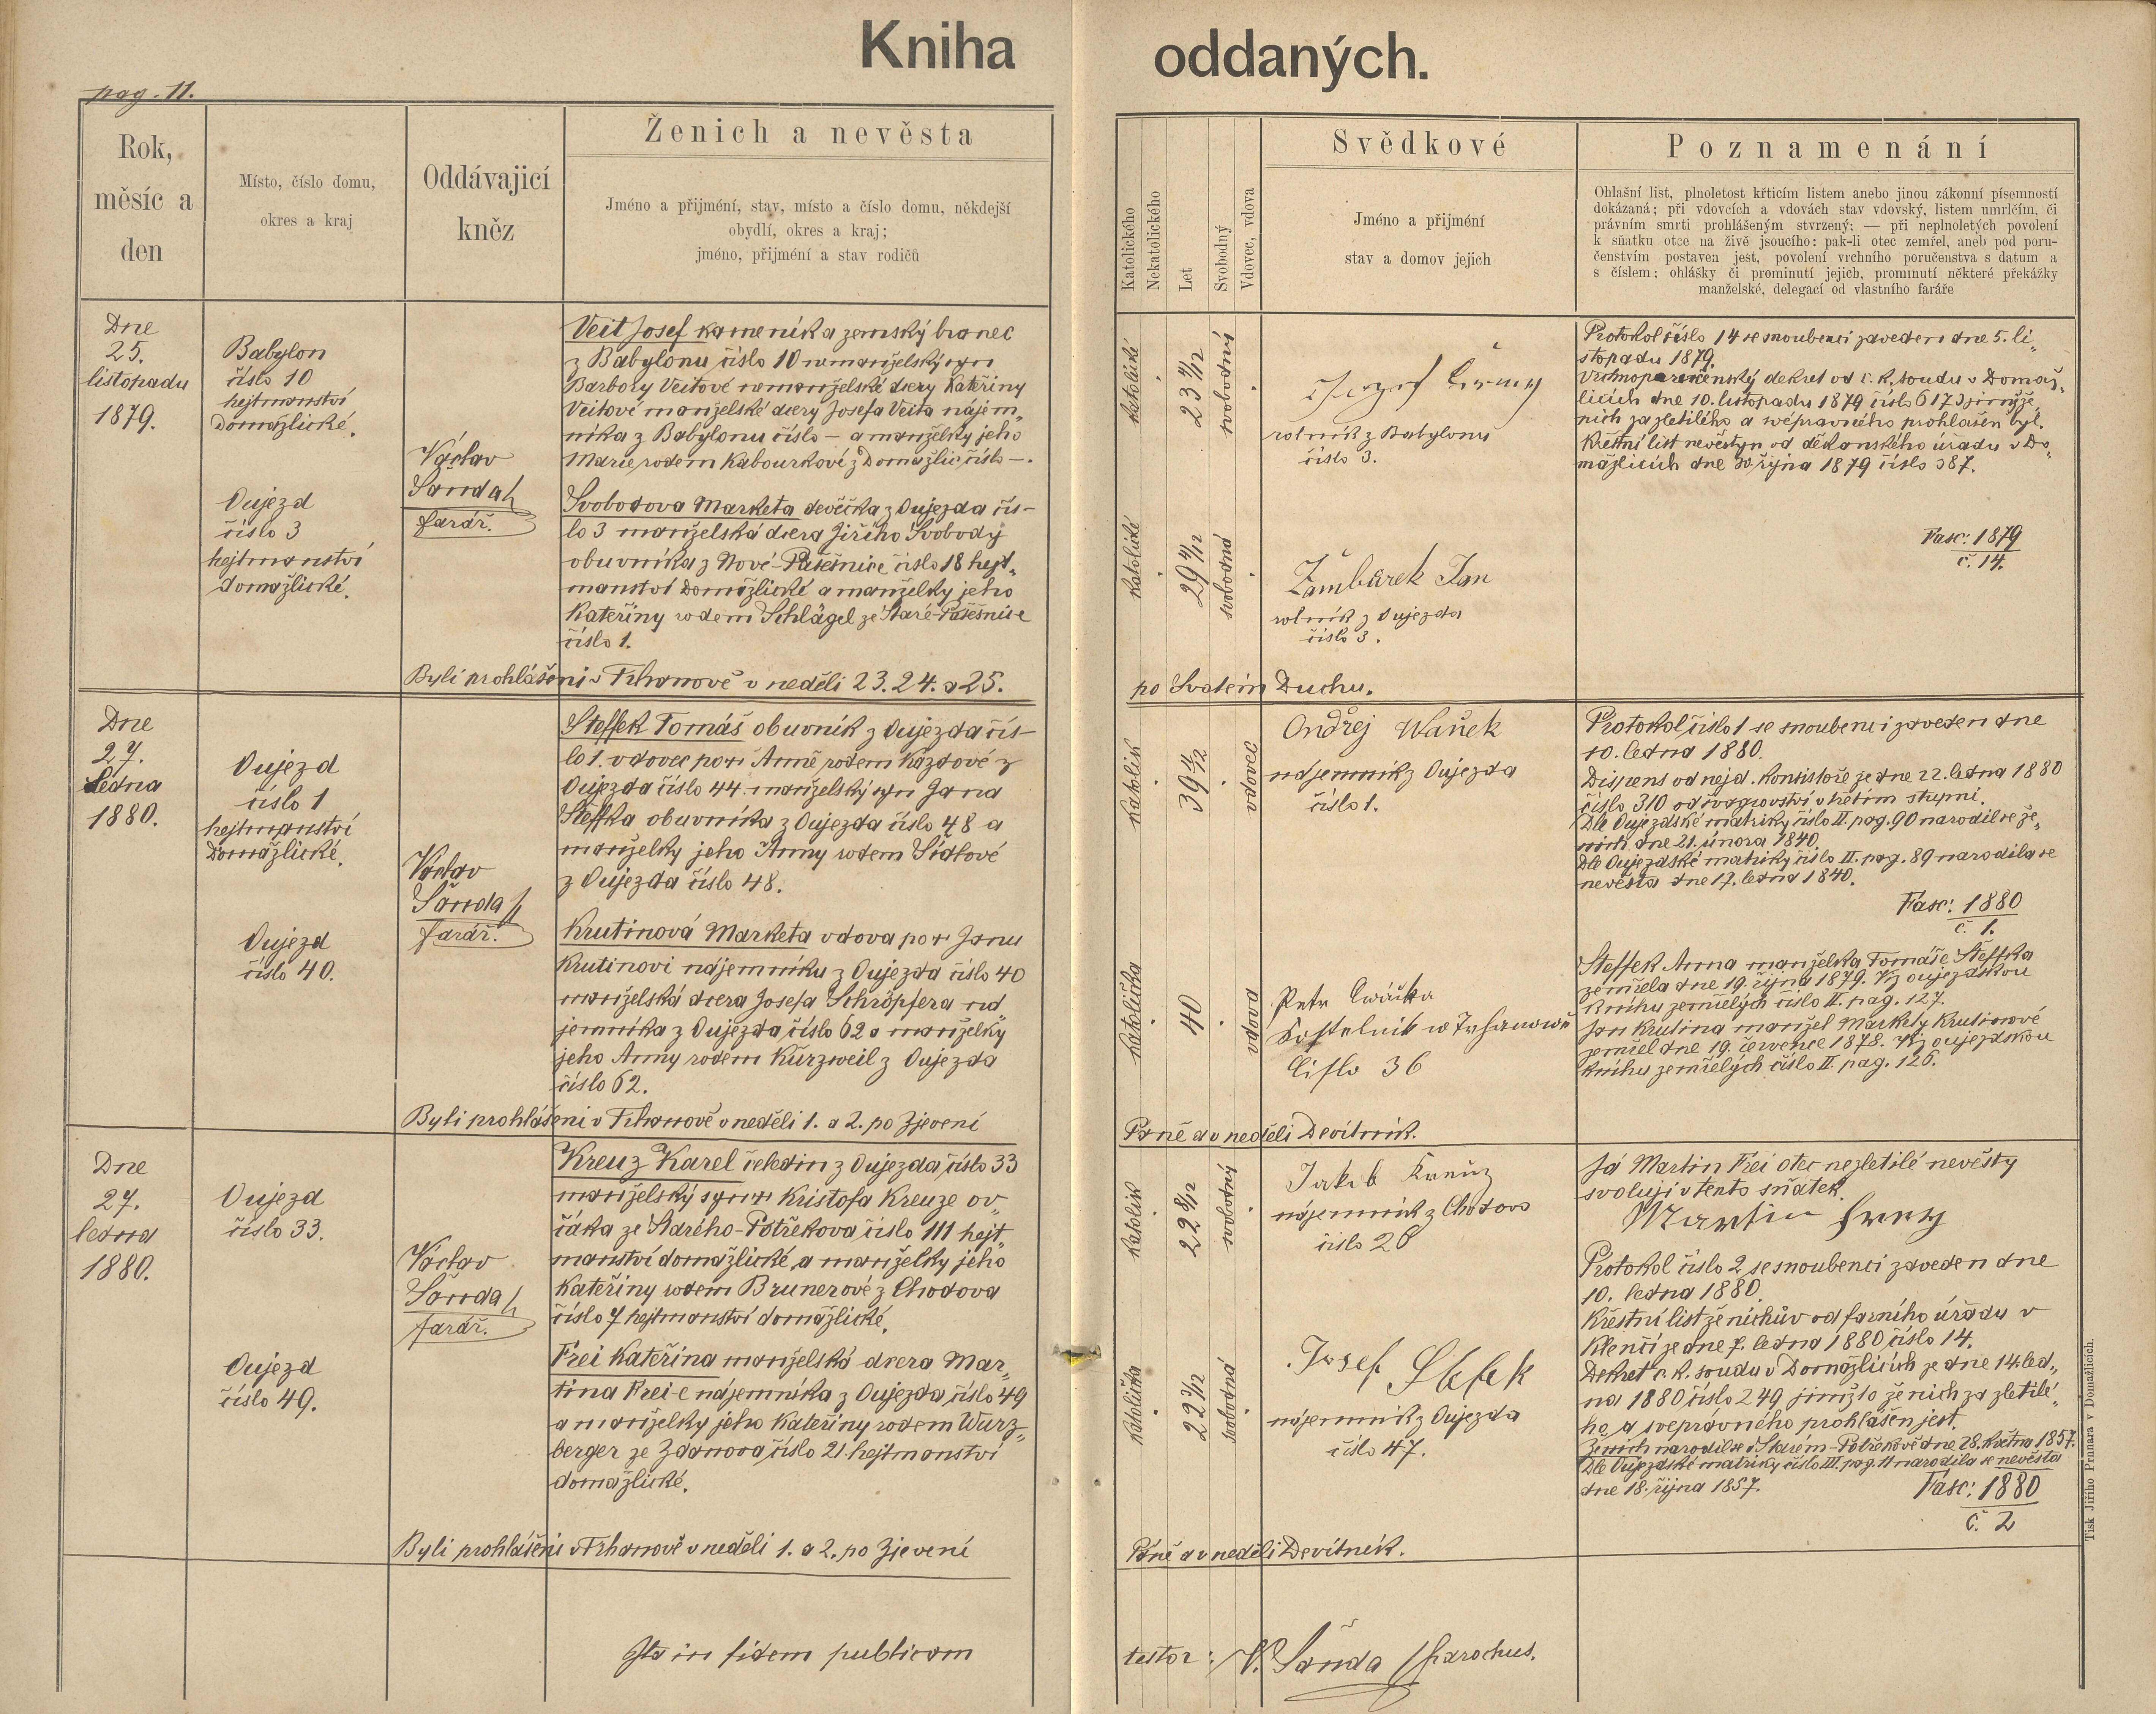 Kniha oddaných.
pag. 11.
Rok,
měsíc a
den
Místo, číslo domu,
okres a kraj
Oddávajicí
kněz
Ženich a nevěsta
Jméno a přijmění, stav, místo a číslo domu, někdejší
obydlí, okres a kraj;
jméno, přijmění a stav rodičů
Katolického
Nekatolického
Let
Svobodný
Vdovec, vdova
Svědkové
Jméno a přijmění
stav a domov jejich
Poznamenání
Ohlašní list, plnoletost křticím listem anebo jinou zákonní písemností
dokázaná; při vdovcích a vdovách stav vdovský, listem umrlčím, či
právním smrti prohlášeným stvrzený; — při neplnoletých povolení
k sňatku otce na živě jsoucího: pak-li otec zemřel, aneb pod poru-
čenstvím postaven jest, povolení vrchního poručenstva s datum a
s číslem; ohlášky či prominutí jejich, prominutí některé překážky
manželské, delegací od vlastního faráře
Dne
25.
listopadu
1879.
Babylon
číslo 10
hejtmanství
Domažlické.
Oujezd
číslo 3
hejtmanství
domažlické.
Václav
Šanda
farář.
Veit Josef kameník a zemský branec
z Babylonu číslo 10 nemanželský syn
Barbory Veitové nemanželské dcery Kateřiny
Veitové manželské dcery Josefa Veita nájem„
níka z Babylonu číslo — a manželky jeho
Marie rodem Kabourkové z Domažlic číslo —.
Svobodova Marketa děvečka z Oujezda čís-
lo 3 manželská dcera Jiřího Svobody
obuvníka z Nové-Pasečnice číslo 18 hejt„
manství Domažlické a manželky jeho
Kateřiny rodem Schlägel ze Staré-Pasečnice
číslo 1.
Byli prohlášeni v Trhanově v neděli 23. 24. a 25. po Svatém Duchu.
katolické
23 9/12
svobodný
katolické
svobodná
rolník z Babylonu
číslo 3.
Žambůrek Jan
rolník z Oujezda
číslo 3.
Protokol číslo 14 se snoubenci zaveden dne 5. li„
stopadu 1879.
Vrchnoporučenský dekret od c. k. soudu v Domaž„
licích dne 10. listopadu 1879 číslo 6173 jimž že„
nich za zletilého a svéprávného prohlášen byl.
Křestní list nevěstyn od děkanského úřadu v Do„
mažlicích dne 30 října 1879 číslo 387.
Fasc: 1879
č. 14.
Dne
27.
ledna
1880.
Oujezd
číslo 1
hejtmanství
Domažlické.
Oujezd
číslo 40.
Václav
Šanda
farář.
Steffek Tomáš obuvník z Oujezda čís-
lo 1. vdovec po † Anně rodem Kazdové z
Oujezda číslo 44. manželský syn Jana
Steffka obuvníka z Oujezda číslo 48 a
manželky jeho Anny rodem Sidlové
z Oujezda číslo 48.
Krutinová Marketa vdova po † Janu
Krutinovi nájemníku z Oujezda číslo 40
manželská dcera Josefa Schröpfera ná„
jemníka z Oujezda číslo 62 a manželky
jeho Anny rodem Kürzweil z Oujezda
číslo 62.
Byli prohlášeni v Trhanově v neděli 1. a 2. po Zjevení Páně a v neděli Devítník.
katolík
39 11/12
vdovec
katolička
40
vdova
Ondřej Waněk
nájemník z Oujezda
číslo 1.
Petr
Kostelník w Trhanowě
Čislo 36
Protokol číslo 1 se snoubenci zaveden dne
10. ledna 1880.
Dispens od nejd. Konsistoře ze dne 22. ledna 1880
číslo 310 od švagrovství v třetím stupni.
Dle Oujezdské matriky číslo II. pag. 90 narodil se že„
nich dne 21. února 1840.
Dle Oujezdské matriky číslo II. pag. 89 narodila se
nevěsta dne 17. ledna 1840.
Fasc: 1880
č. 1.
Steffek Anna manželka Tomáše Steffka
zemřela dne 19. října 1879. Viz oujezdskou
knihu zemřelých číslo II. pag. 127.
Jan Krutina manžel Markety Krutinové
zemřel dne 19. července 1878. Viz oujezdskou
knihu zemřelých číslo II. pag. 126.
Dne
27.
ledna
1880.
Oujezd
číslo 33.
Oujezd
číslo 49.
Václav
Šanda
farář.
Kreuz Karel čeledín z Oujezda číslo 33
manželský syn † Kristofa Kreuze ov„
čáka ze Starého-Postřekova číslo 111 hejt„
manství domažlické a manželky jeho
Kateřiny rodem Brunerové z Chodova
číslo 7 hejtmanství domažlické.
Frei Kateřina manželská dcera Mar„
tina Frei-e nájemníka z Oujezda číslo 49
a manželky jeho Kateřiny rodem Wurz„
berger ze Zdanova číslo 21 hejtmanství
domažlické.
Byli prohlášeni v Trhanově v neděli 1. a 2. po Zjevení Páně a v neděli Devítník.
katolík
22 8/12
svobodný
katolička
22 3/12
svobodná
Jakub Kreuz
nájemník z Chodova
číslo 26
Josef Stefek
nájemník z Oujezda
číslo 47.
Já Martin Frei otec nezletilé nevěsty
svoluji v tento sňatek.
Martin Frey
Protokol číslo 2 se snoubenci zaveden dne
10. ledna 1880.
Křestní list ženichův od farního úřadu v
Klenčí ze dne 7. ledna 1880 číslo 14.
Dekret c. k. soudu v Domažlicích ze dne 14. led„
na 1880 číslo 249 jimžto ženich za zletilé„
ho a svéprávného prohlášen jest.
Ženich narodil se v Starém-Postřekově dne 28. května 1857.
Dle Oujezdské matriky číslo III. pag. 11 narodila se nevěsta
dne 18. října 1857.
Fasc: 1880
č. 2
Ita in fidem publicam testor: V. Šanda parochus.
Tisk Jiřího Prunara v Domažlicích.